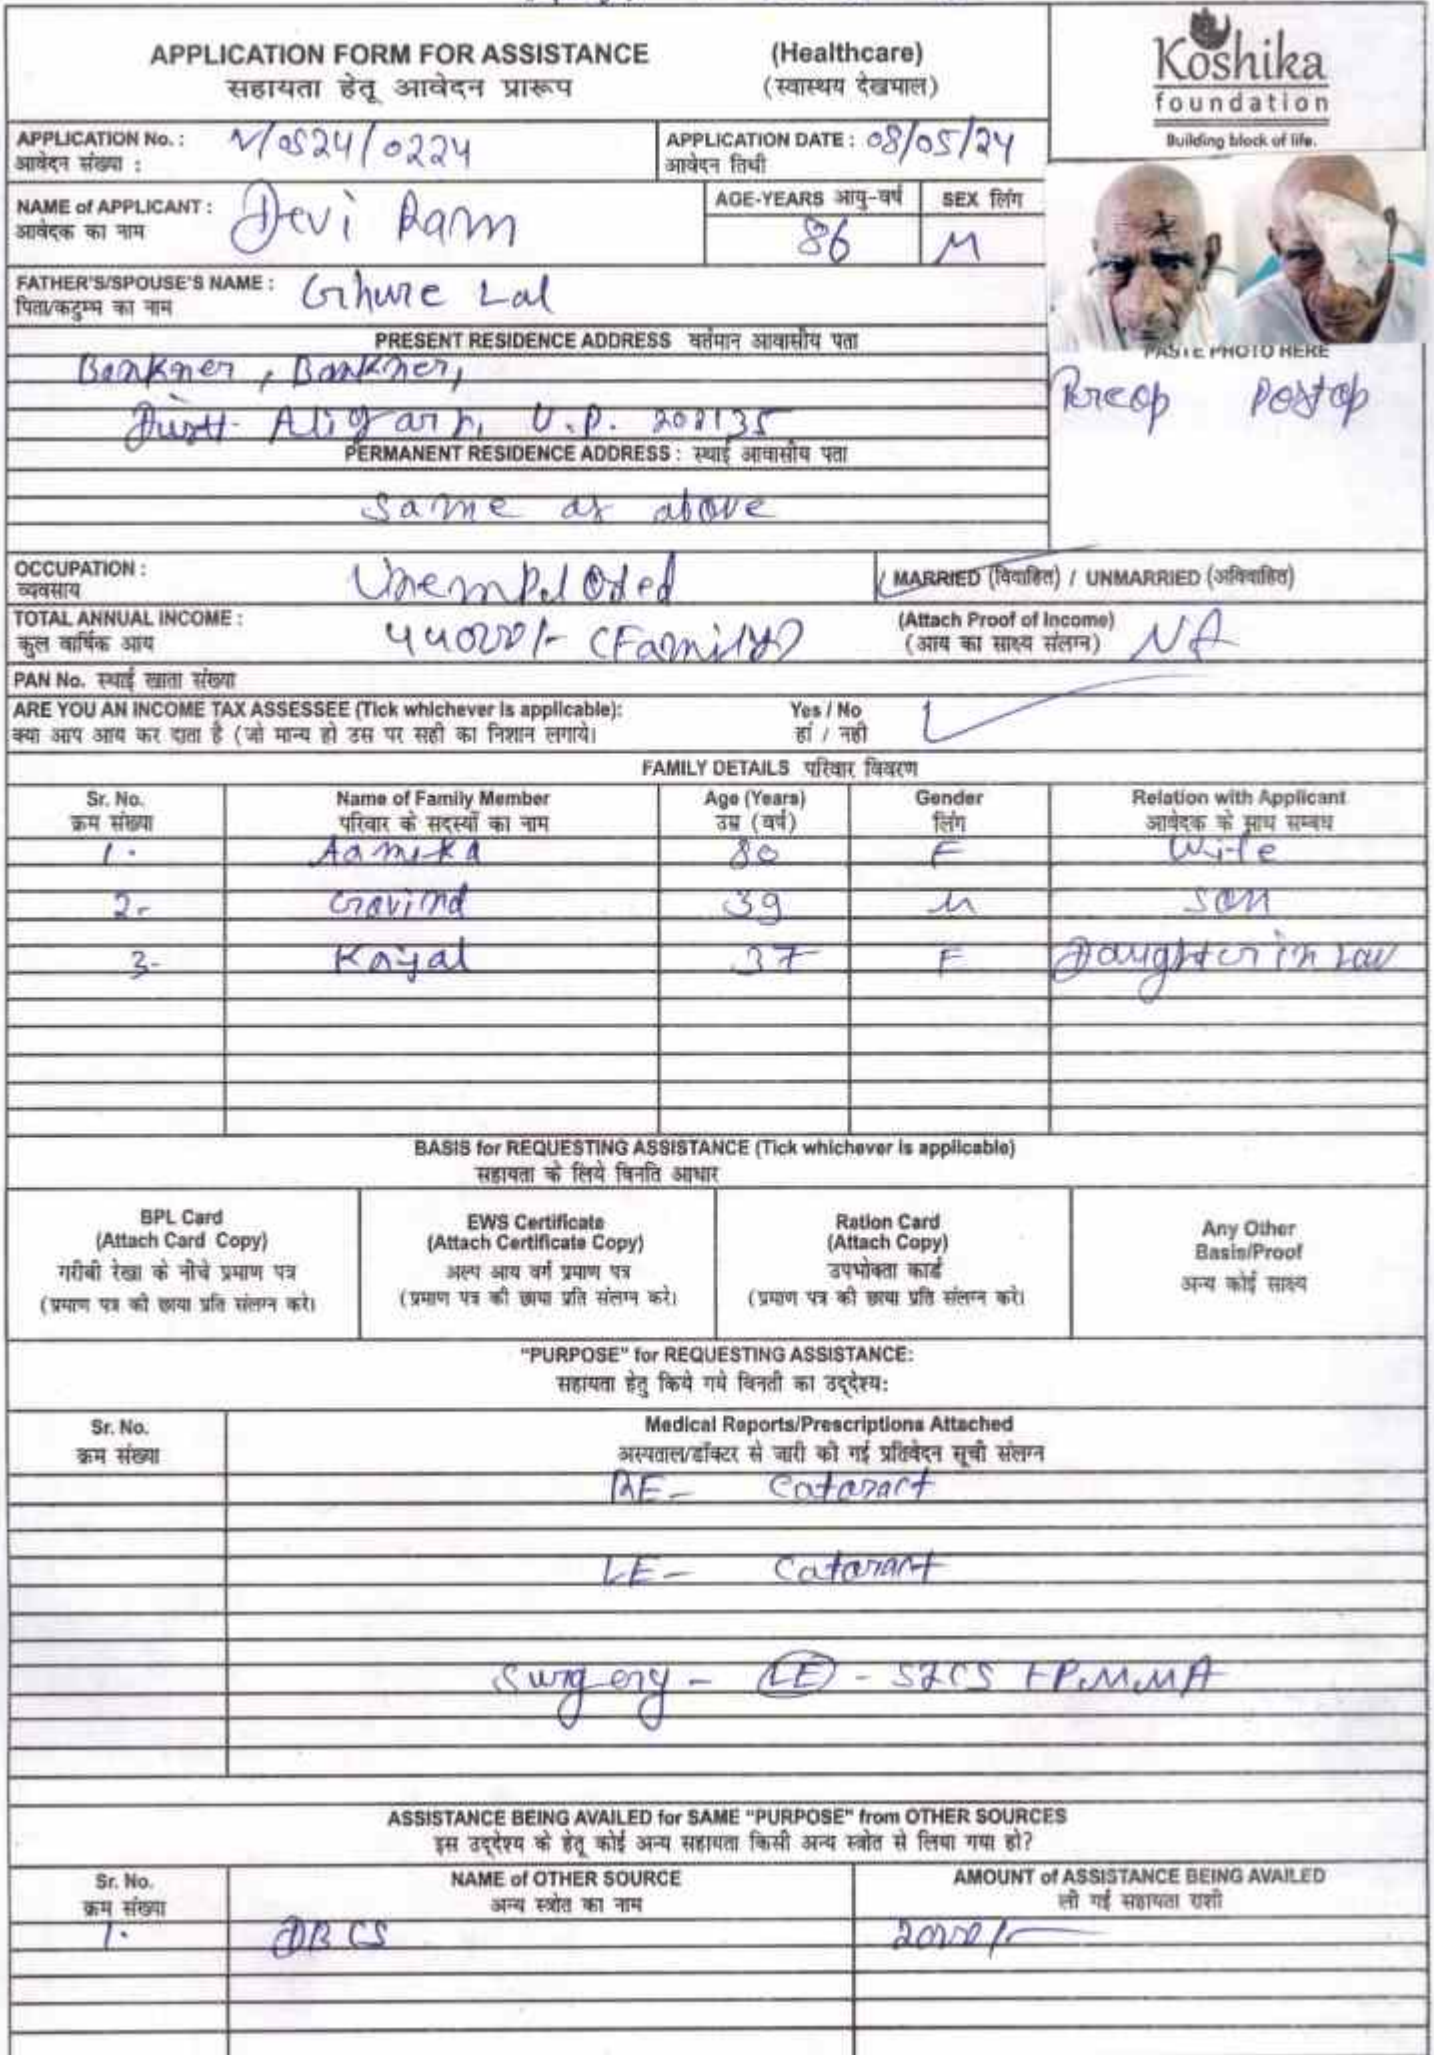 APPLICATION FORM FOR ASSISTANCE (Healthcare)
सहायता हेतू आवेदन प्रारूप (स्वास्थय देखभाल)
Koshika
foundation
Building block of life.
APPLICATION No. : V/0524/0224 APPLICATION DATE : 08/05/24
आवेदन संख्या : आवेदन तिथी
NAME of APPLICANT : Devi Ram AGE-YEARS आयु-वर्ष 86 SEX लिंग M
आवेदक का नाम
FATHER'S/SPOUSE'S NAME : Ghure Lal
पिता/कटुम्भ का नाम
PRESENT RESIDENCE ADDRESS वर्तमान आवासीय पता
PASTE PHOTO HERE
Bankner, Bankner,
Preop Postop
Distt- Aligarh, U.P. 202135
PERMANENT RESIDENCE ADDRESS : स्थाई आवासीय पता
Same as above
OCCUPATION : MARRIED (विवाहित) / UNMARRIED (अविवाहित)
व्यवसाय
TOTAL ANNUAL INCOME : 44000/- (Family) (Attach Proof of Income) NA
कुल वार्षिक आय (आय का साक्ष्य संलग्न)
PAN No. स्थाई खाता संख्या
ARE YOU AN INCOME TAX ASSESSEE (Tick whichever is applicable): Yes / No
क्या आप आय कर दाता है (जो मान्य हो उस पर सही का निशान लगाये। हां / नही
FAMILY DETAILS परिवार विवरण
Sr. No. Name of Family Member Age (Years) Gender Relation with Applicant
क्रम संख्या परिवार के सदस्यों का नाम उम्र (वर्ष) लिंग आवेदक के साथ सम्बध
1. Aamika 80 F Wife
2- 39 M Son
3- Kajal 37 F Daughter in Law
BASIS for REQUESTING ASSISTANCE (Tick whichever is applicable)
सहायता के लिये विनति आधार
BPL Card
(Attach Card Copy)
गरीबी रेखा के नीचे प्रमाण पत्र
(प्रमाण पत्र की छाया प्रति संलग्न करे।
EWS Certificate
(Attach Certificate Copy)
अल्प आय वर्ग प्रमाण पत्र
(प्रमाण पत्र की छाया प्रति संलग्न करे।
Ration Card
(Attach Copy)
उपभोक्ता कार्ड
(प्रमाण पत्र की छाया प्रति संलग्न करे।
Any Other
Basis/Proof
अन्य कोई साक्ष्य
"PURPOSE" for REQUESTING ASSISTANCE:
सहायता हेतु किये गये विनती का उद्देश्य:
Sr. No. Medical Reports/Prescriptions Attached
क्रम संख्या अस्पताल/डॉक्टर से जारी की गई प्रतिवेदन सूची संलग्न
RE- Cataract
LE- Cataract
Surgery - LE - SICS + PMMA
ASSISTANCE BEING AVAILED for SAME "PURPOSE" from OTHER SOURCES
इस उद्देश्य के हेतू कोई अन्य सहायता किसी अन्य स्त्रोत से लिया गया हो?
Sr. No. NAME of OTHER SOURCE AMOUNT of ASSISTANCE BEING AVAILED
क्रम संख्या अन्य स्त्रोत का नाम ली गई सहायता राशी
1. DBCS 2000/-